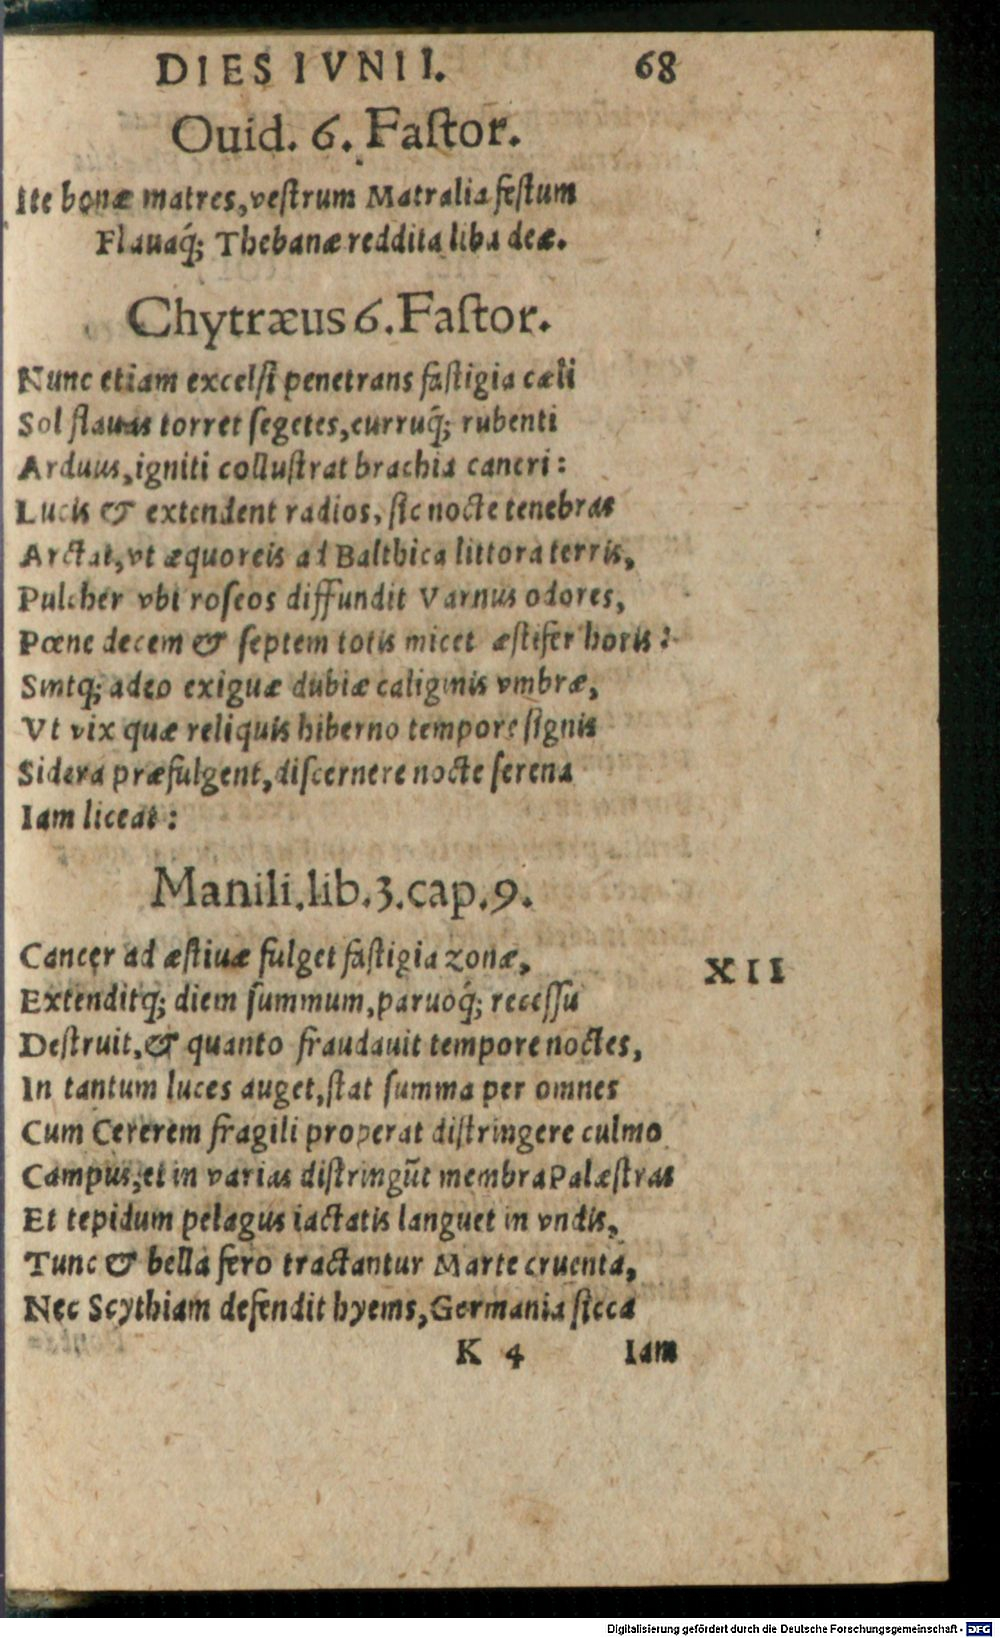 DIES IVNII. 68
Ouid. 6. Faſtor.
Ite bonæ matres, veſtrum Matralia feſtum
Flauaq́; Thebanæ reddita liba deæ.
Chytræus 6. Faſtor.
Nunc etiam excelſi penetrans faſtigia cæli
Sol flauas torret ſegetes, curruq́; rubenti
Arduus, igniti colluſtrat brachia cancri:
Lucis & extendent radios, ſic nocte tenebras
Arctat, vt æquoreis ad Balthica littora terris,
Pulcher vbi roſeos diffundit Varnus odores,
Pœne decem & ſeptem totis micet æſtifer horis:
Sintq́; adeo exiguæ dubiæ caliginis vmbræ,
Vt vix quæ reliquis hiberno tempore ſignis
Sidera præfulgent, diſcernere nocte ſerena
Iam liceat:
Manili. lib. 3. cap. 9.
Cancer ad æſtiuæ fulget faſtigia zonæ, XII
Extenditq́; diem ſummum, paruoq́; receſſu
Deſtruit, & quanto fraudauit tempore noctes,
In tantum luces auget, ſtat ſumma per omnes
Cum Cererem fragili properat diſtringere culmo
Campus, et in varias diſtringũt membra Palæſtras
Et tepidum pelagus iactatis languet in vndis,
Tunc & bella fero tractantur Marte cruenta,
Nec Scythiam defendit hyems, Germania ſicca
K 4 Iam
Digitalisierung gefördert durch die Deutsche Forschungsgemeinschaft - DFG